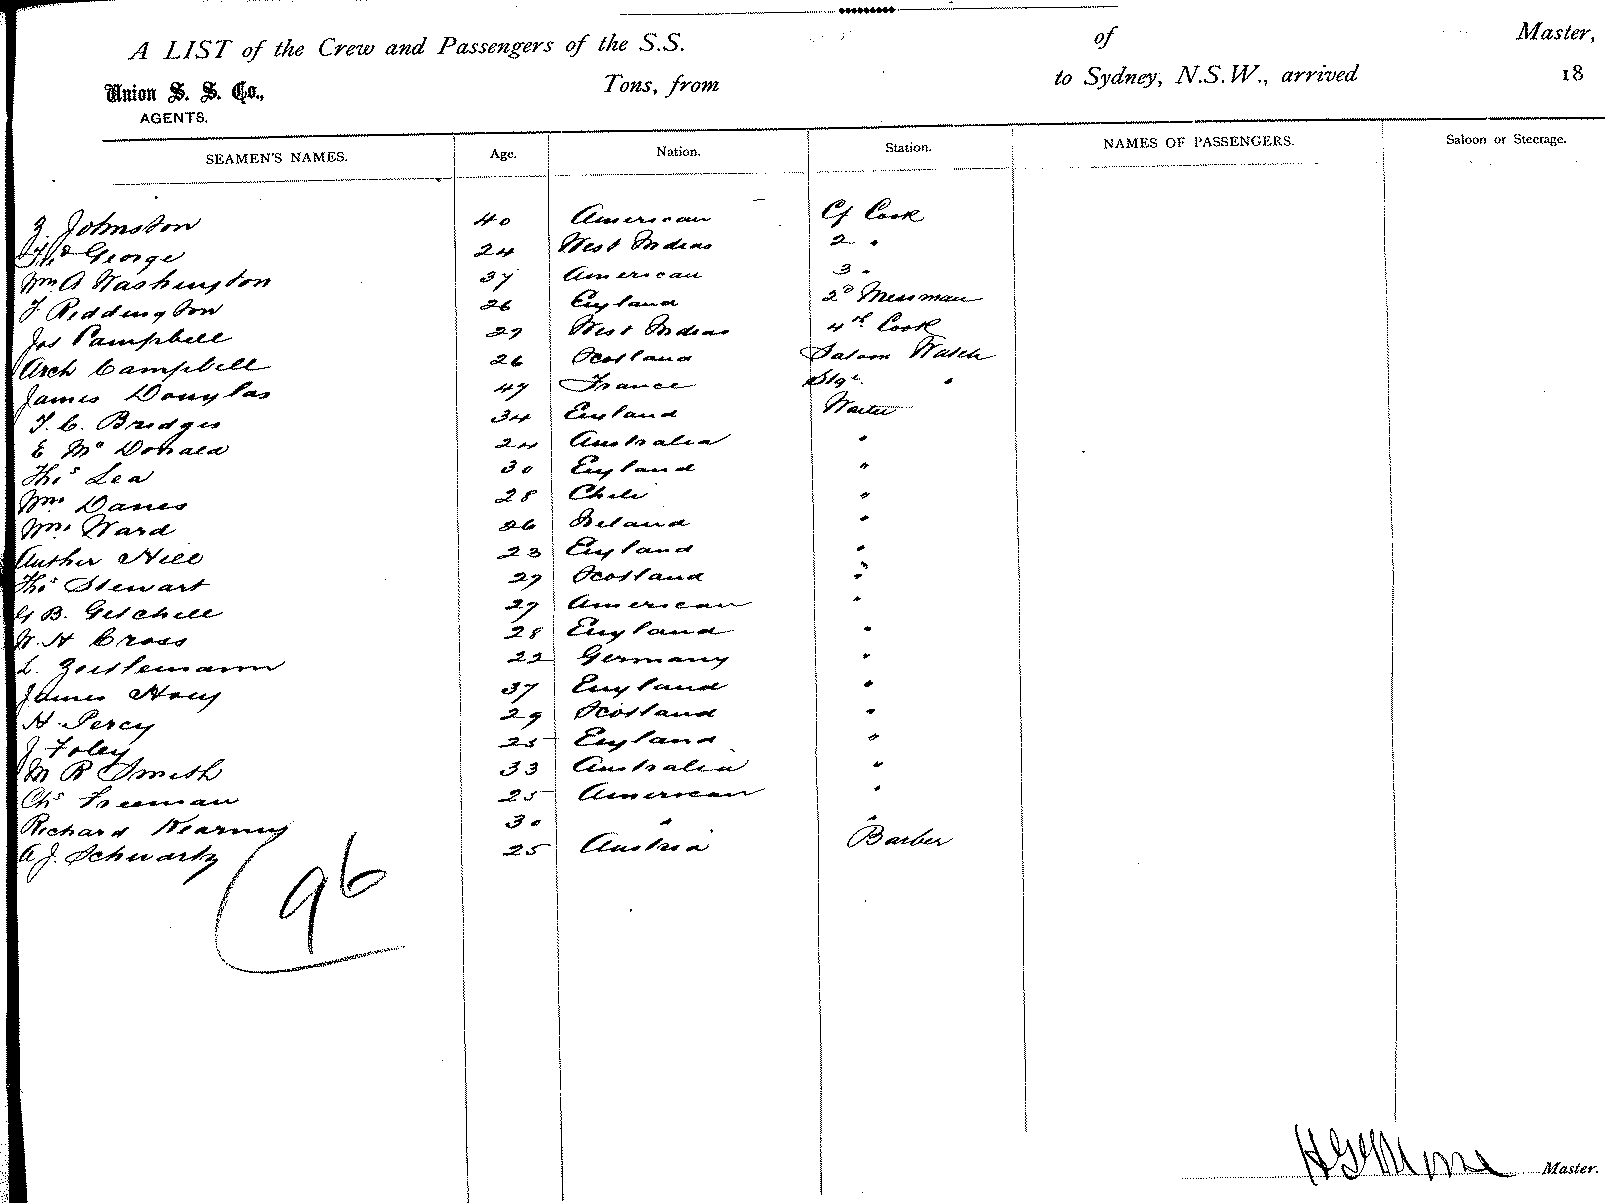 A LIST of the Crew and Passengers of the S.S. of Master,
Union S. S. Co., Tons, from to Sydney, N.S.W., arrived 18
AGENTS.
SEAMEN'S NAMES. Age. Nation. Station. NAMES OF PASSENGERS. Saloon or Steerage.
Z. Johnston 40 American Cf Cook
George 24 West Indias 2 "
Wm A Washington 37 American 3 "
T Reddington 26 England 2d Messman
Jos Pampbell 27 West Indias 4th Cook
Arch Campbell 26 Scotland Saloon Watch
James Douglas 47 France Stge "
T. C. Bridges 34 England Waiter
E McDonald 24 Australia "
Thos Lea 30 England "
Wm Danes 28 Chili "
Wm Ward 26 Ireland "
Auther Hill 23 England "
Thos Stewart 27 Scotland "
G B. Getchell 27 American "
W. H Cross 28 England "
L. Zeitlemann 22 Germany "
James Hoey 37 England "
H. Percy 29 Scotland "
J. Foley 25 England "
M R Smith 33 Australia "
Chs Freeman 25 American "
Richard Kearney 30 " "
A J. Schwartz 25 Austria Barber
96
Master.